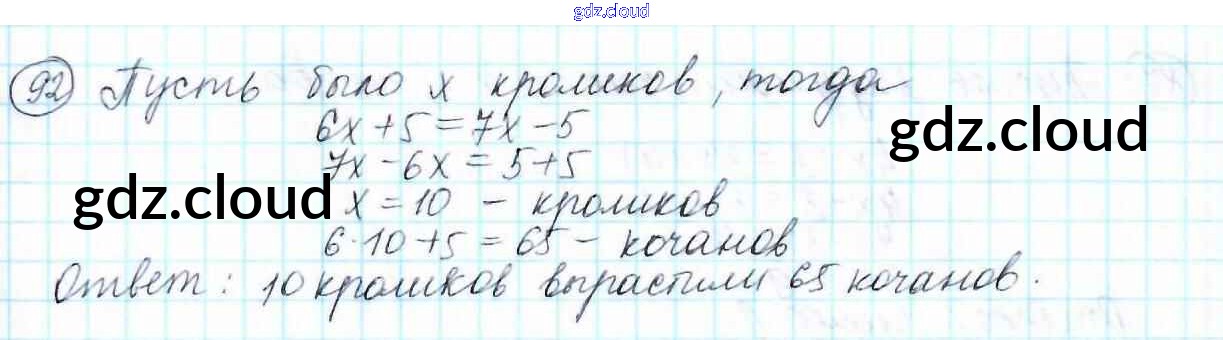 gdz.cloud
92 Пусть было x кроликов, тогда
6x+5=7x-5
gdz.cloud
7x-6x=5+5
gdz.cloud
x=10 - кроликов
6·10+5=65 - кочанов
Ответ: 10 кроликов вырастили 65 кочанов.